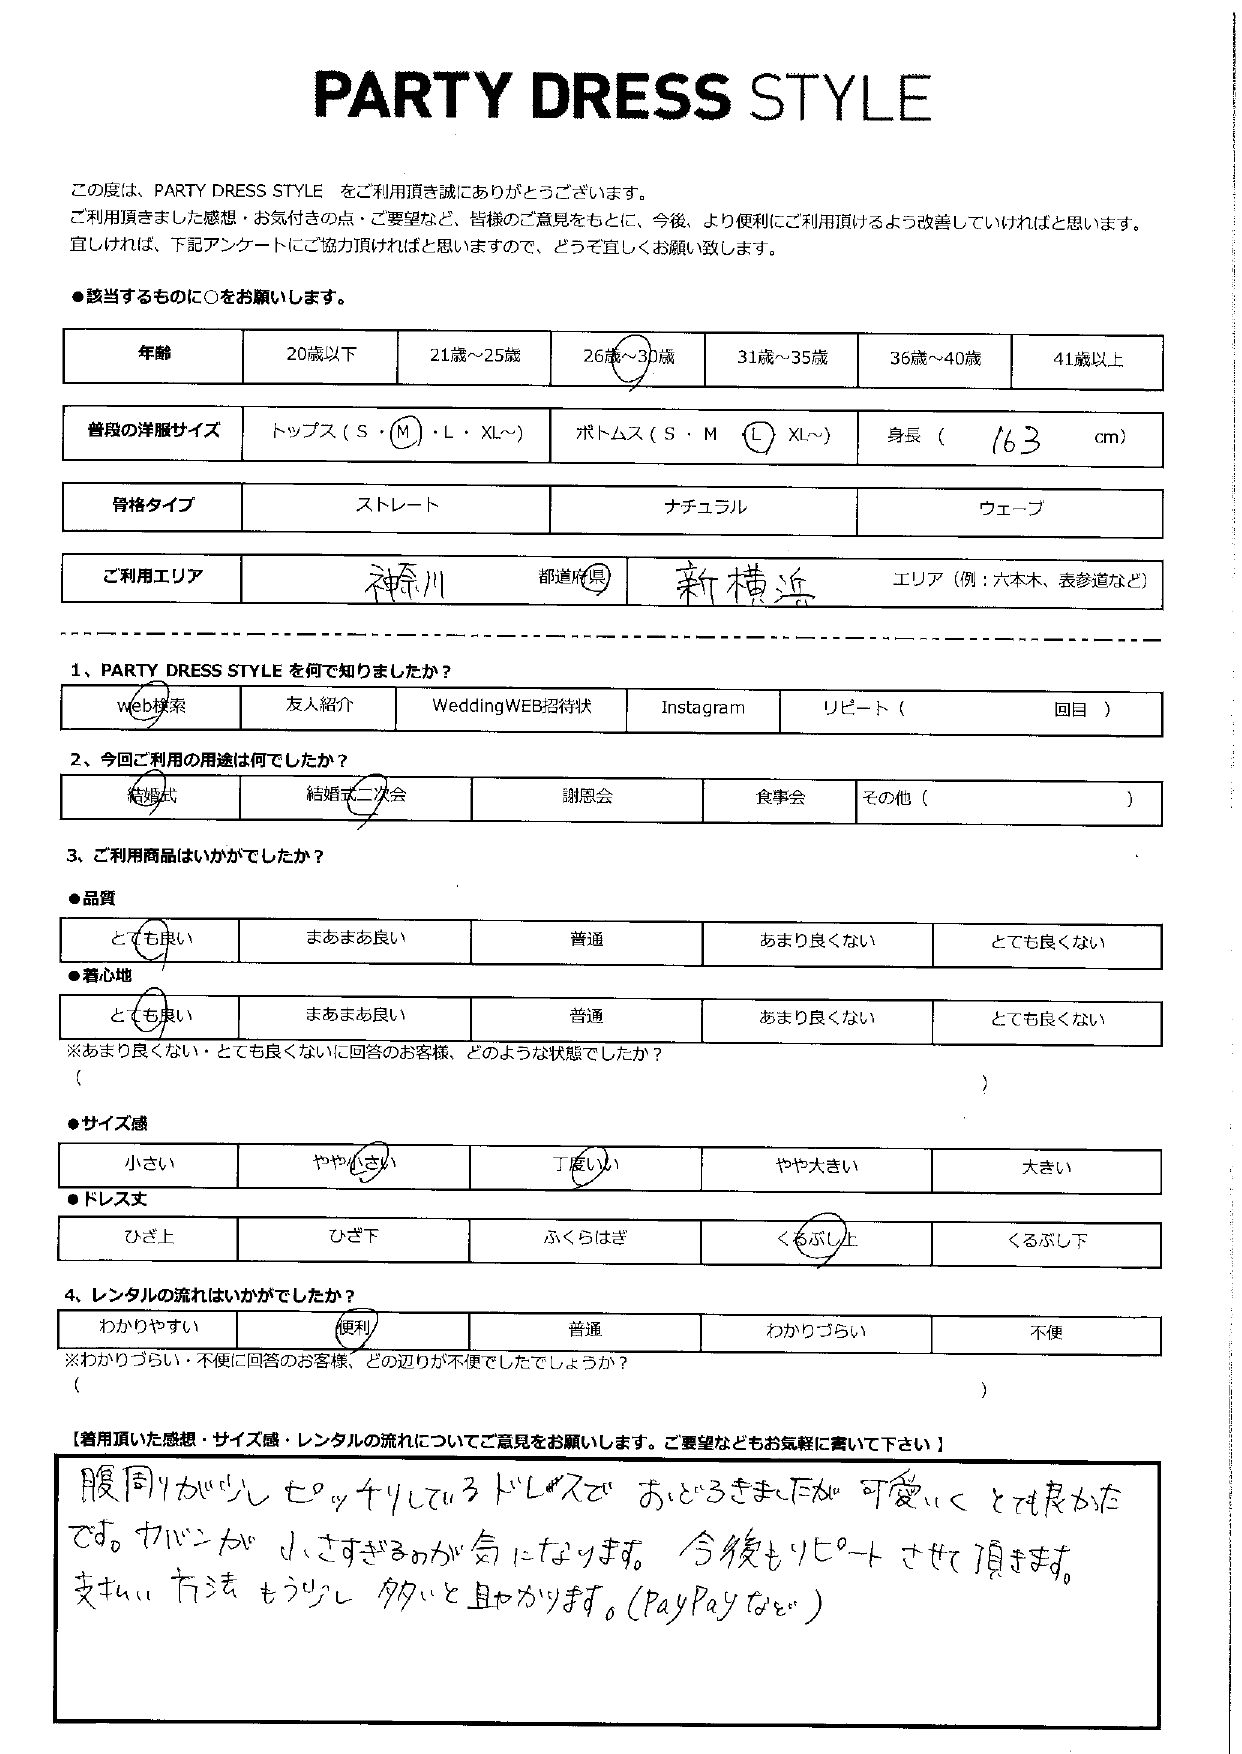 PARTY DRESS STYLE
この度は、PARTY DRESS STYLE　をご利用頂き誠にありがとうございます。
ご利用頂きました感想・お気付きの点・ご要望など、皆様のご意見をもとに、今後、より便利にご利用頂けるよう改善していければと思います。
宜しければ、下記アンケートにご協力頂ければと思いますので、どうぞ宜しくお願い致します。
●該当するものに○をお願いします。
年齢 20歳以下 21歳～25歳 26歳～30歳 31歳～35歳 36歳～40歳 41歳以上
普段の洋服サイズ トップス（ S ・ M ・ L ・ XL～） ボトムス（ S ・ M L XL～） 身長 （ 163 cm）
骨格タイプ ストレート ナチュラル ウェーブ
ご利用エリア 神奈川 都道府県 新横浜 エリア（例：六本木、表参道など）
1、PARTY DRESS STYLE を何で知りましたか？
web検索 友人紹介 WeddingWEB招待状 Instagram リピート（ 回目 ）
2、今回ご利用の用途は何でしたか？
結婚式 結婚式二次会 謝恩会 食事会 その他（ ）
3、ご利用商品はいかがでしたか？
●品質
とても良い まあまあ良い 普通 あまり良くない とても良くない
●着心地
とても良い まあまあ良い 普通 あまり良くない とても良くない
※あまり良くない・とても良くないに回答のお客様、どのような状態でしたか？
（ ）
●サイズ感
小さい やや小さい 丁度いい やや大きい 大きい
●ドレス丈
ひざ上 ひざ下 ふくらはぎ くるぶし上 くるぶし下
4、レンタルの流れはいかがでしたか？
わかりやすい 便利 普通 わかりづらい 不便
※わかりづらい・不便に回答のお客様、どの辺りが不便でしたでしょうか？
（ ）
【着用頂いた感想・サイズ感・レンタルの流れについてご意見をお願いします。ご要望などもお気軽に書いて下さい 】
腹周りが少し ピッチリしている ドレスで おどろきましたが 可愛いく とても良かった
です。カバンが 小さすぎるのが気になります。 今後もリピート させて頂きます。
支払い 方法 もう少し 多いと 助かります。(PayPayなど)